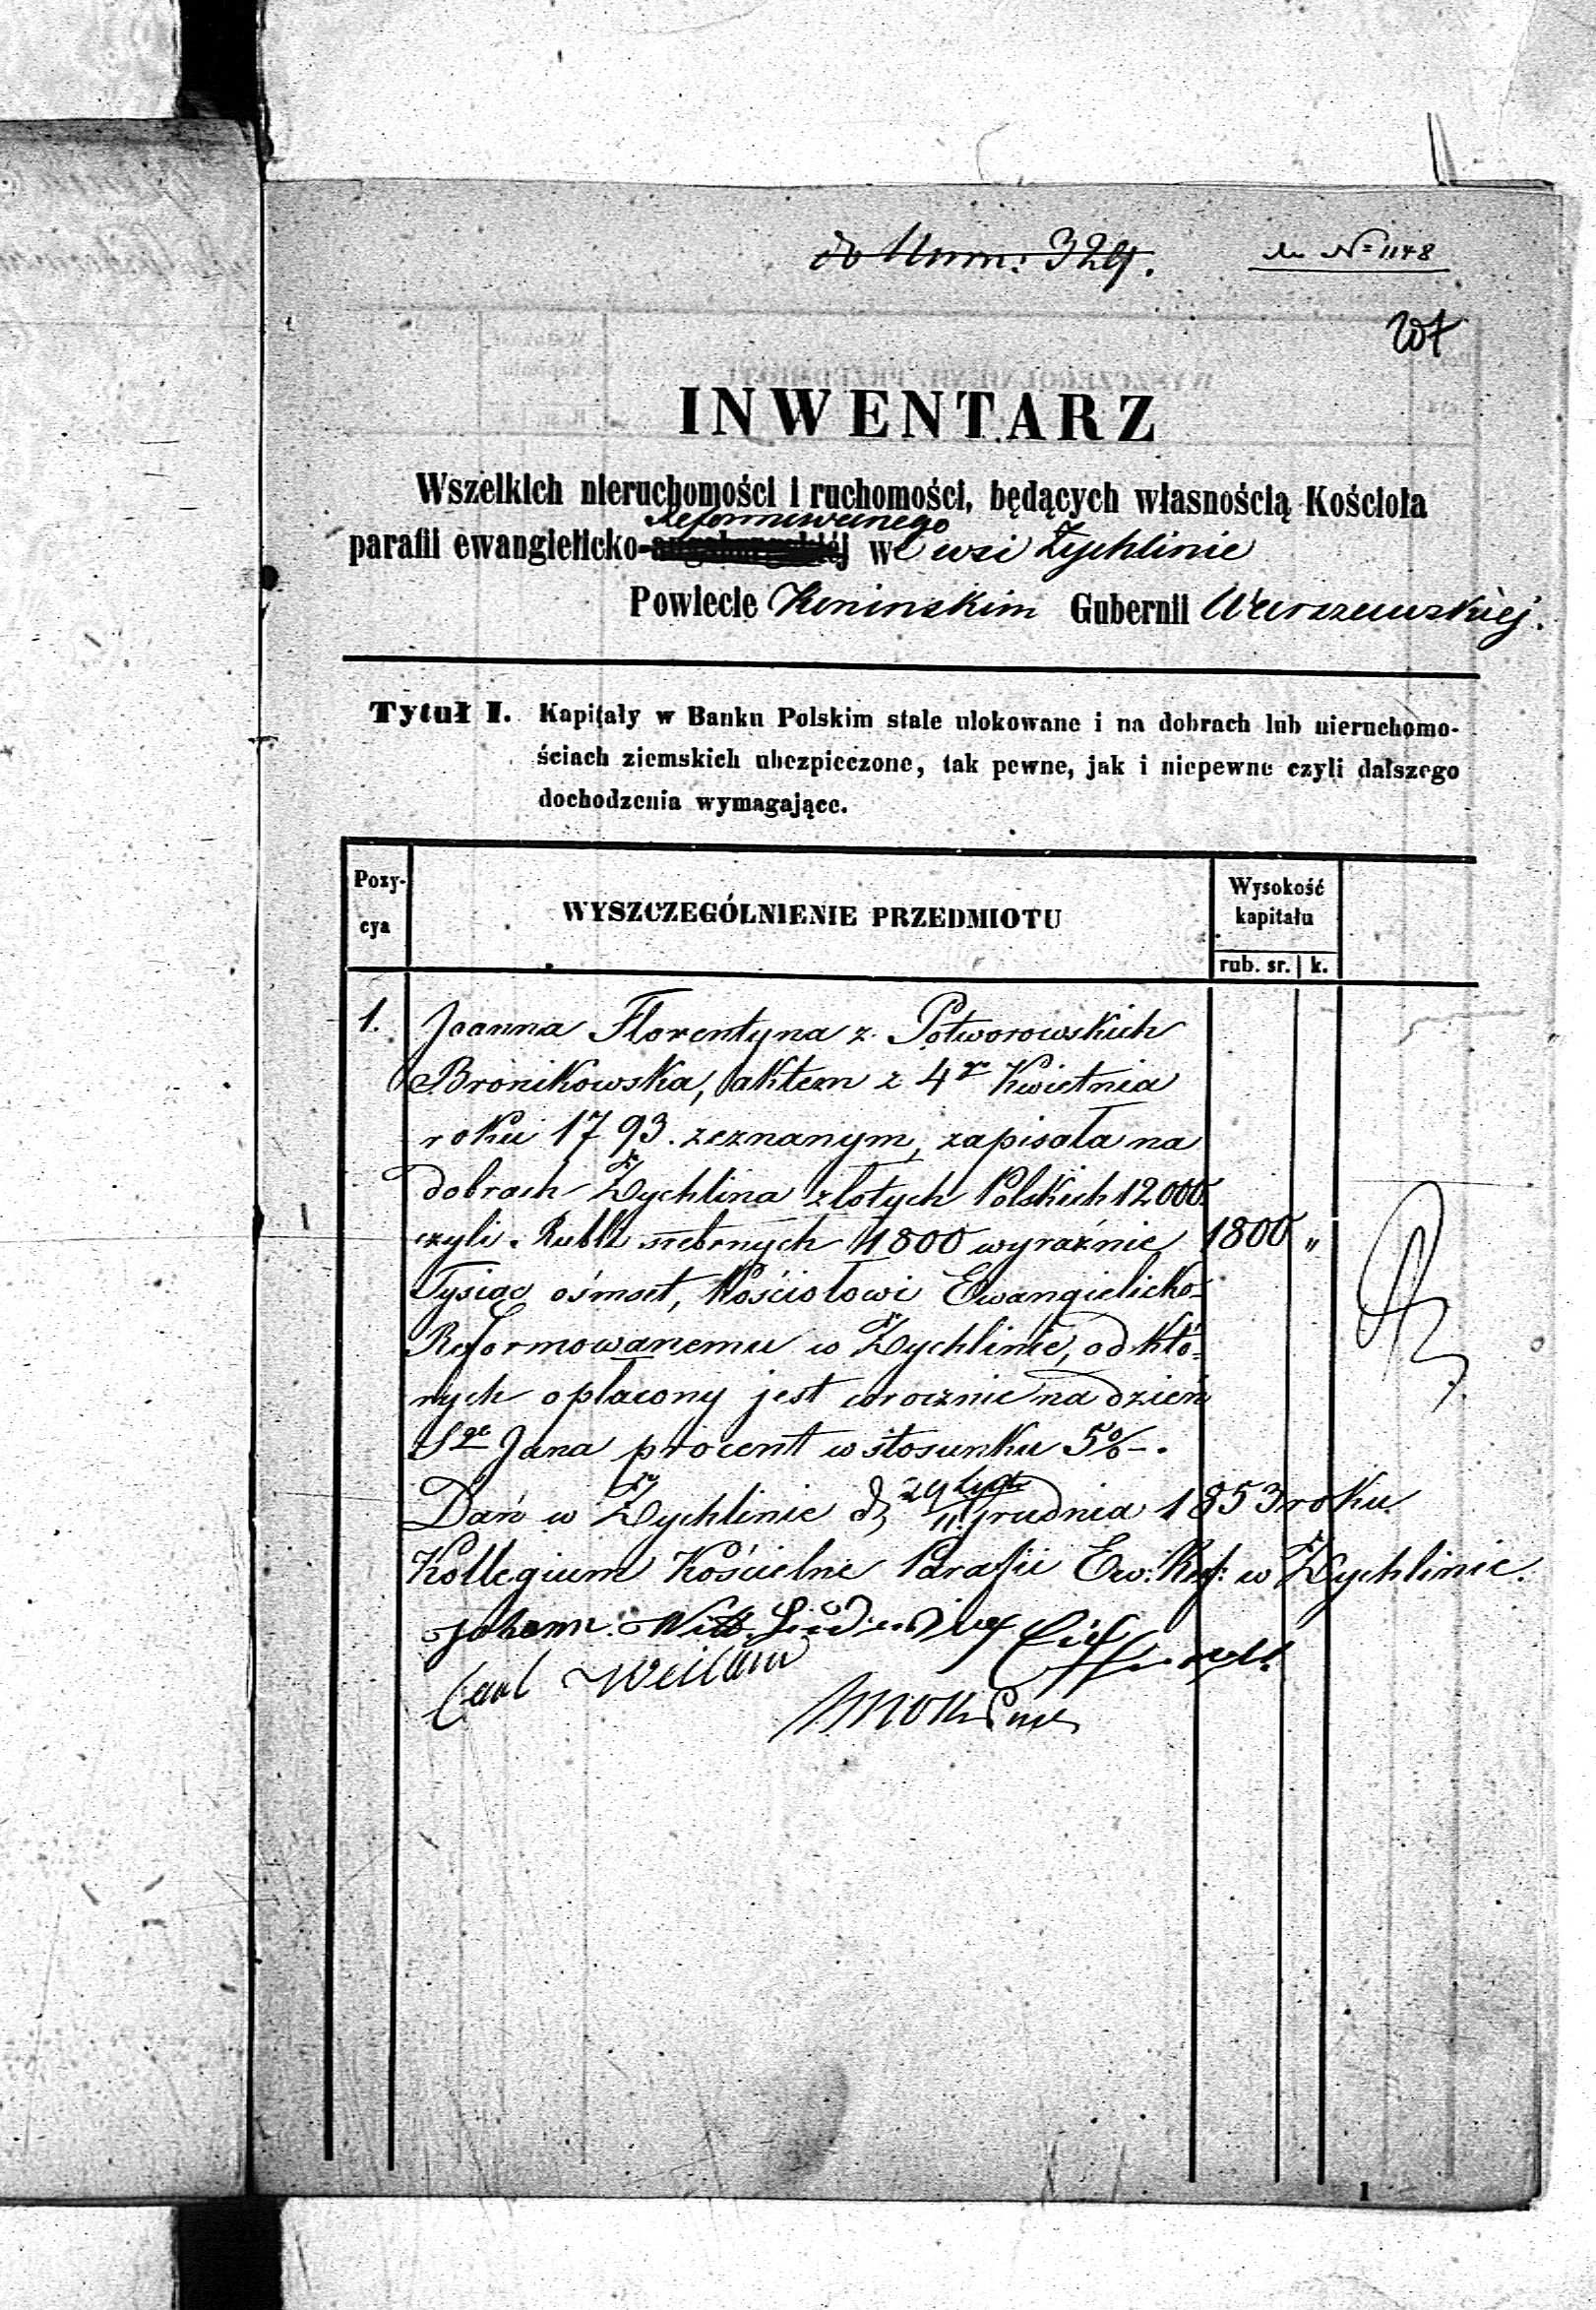 do Num: 329. do № 1148
INWENTARZ
Wszelkich nieruchomości i ruchomości, będących własnością Kościoła
Reformowanego
parafii ewangielicko- we wsi Żychlinie
Powiecie Koninskim Gubernii Warszawskiej.
Tytuł I. Kapitały w Banku Polskim stale ulokowane i na dobrach lub nieruchomo-
ściach ziemskich ubezpieczone, tak pewne, jak i niepewne czyli dalszego
dochodzenia wymagające.
Pozy-
cya
WYSZCZEGÓLNIENIE PRZEDMIOTU
Wysokość
kapitału
rub. sr. k.
1. Joanna Florentyna z Potworowskich
Bronikowska, aktem z 4go Kwietnia
roku 1793. zeznanym, zapisała na
dobrach Żychlina złotych Polskich 12000
czyli Rubli srebrnych 1800 wyraźnie 1800 "
Tysiąc ośmset, Kościołowi Ewangielicko-
Reformowanemu w Żychlinie, od któ-
rych opłacony jest corocznie na dzień
Sgo Jana procent w stosunku 5%.
29 Listp
Dań w Żychlinie d. 11. Grudnia 1853 roku
Kollegium Kościelne Parafii Ew: Ref: w Żychlinie.
Johann
Carl
1